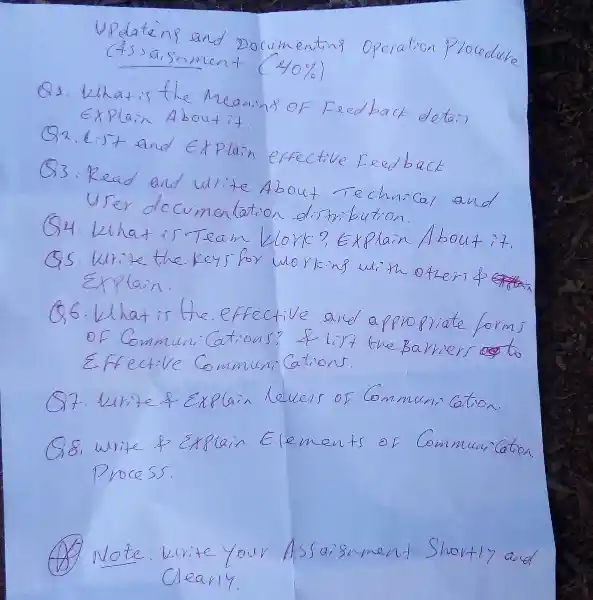 Updating and Documenting Operation Procedure
Assaignment (40%)
Q1. What is the Meaning OF Feedback detail
Explain About it.
Q2. List and Explain effective Feedback
Q3. Read and write About Technical and
User documentation distribution.
Q4. What is Team Work? Explain About it.
Q5. Write the keys for working with others &
Explain.
Q6. What is the effective and appropriate forms
OF Communications? & List the Barriers to
Effective Communications.
Q7. Write & Explain Levels OF Communication.
Q8. write & Explain Elements OF Communication
Process.
Note. Write Your Assaignment Shortly and
Clearly.